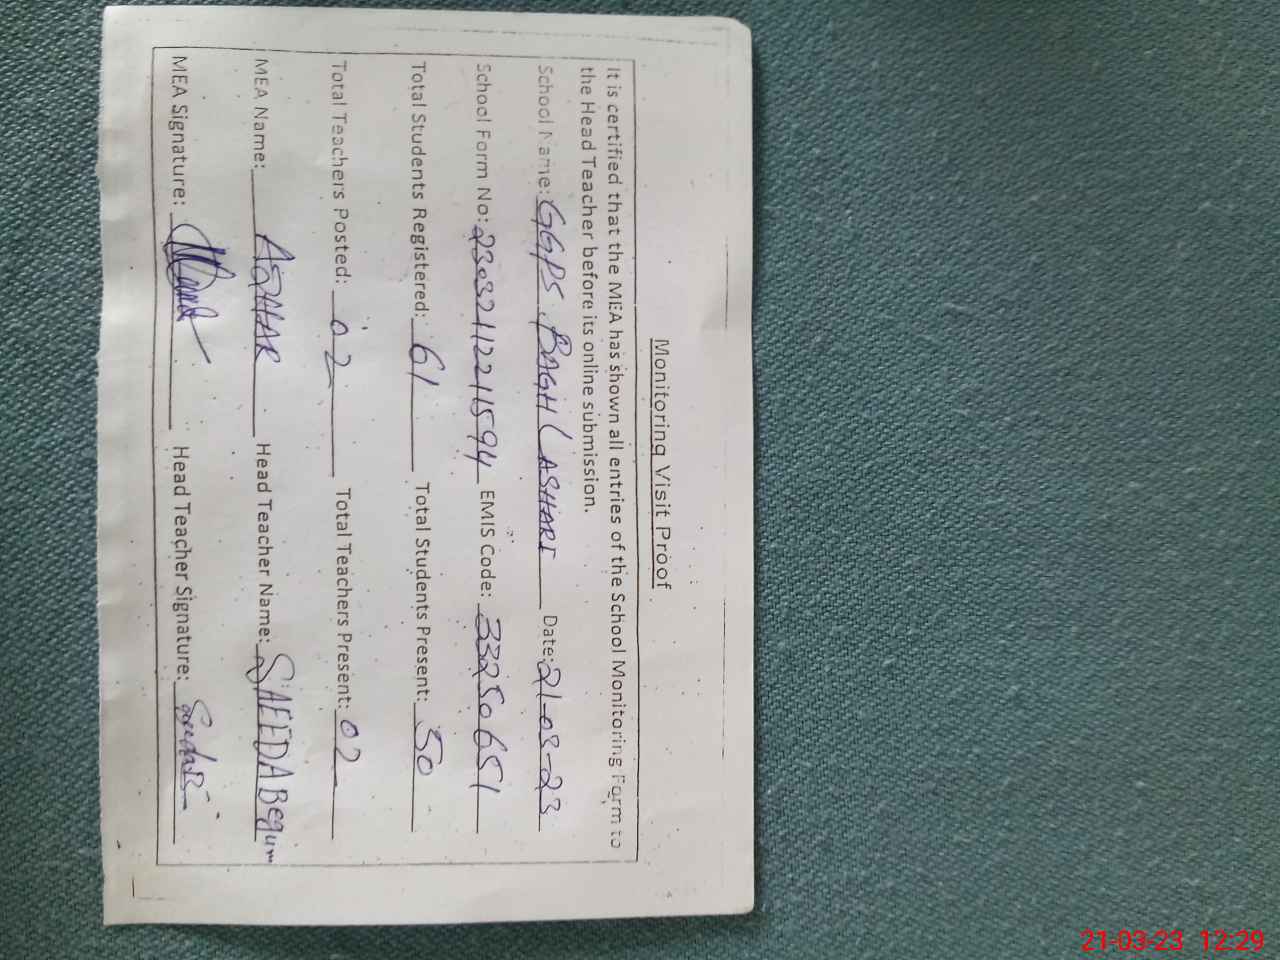 Monitoring Visit Proof
It is certified that the MEA has shown all entries of the School Monitoring Form to
the Head Teacher before its online submission.
School Name: GGPS BAGH LASHARI Date: 21-03-23
School Form No: 23032112211594 EMIS Code: 33250651
Total Students Registered: 61 Total Students Present: 50
Total Teachers Posted: 02 Total Teachers Present: 02
MEA Name: AZHAR Head Teacher Name: SAEEDA Begum
MEA Signature: Head Teacher Signature:
21-03-23 12:29